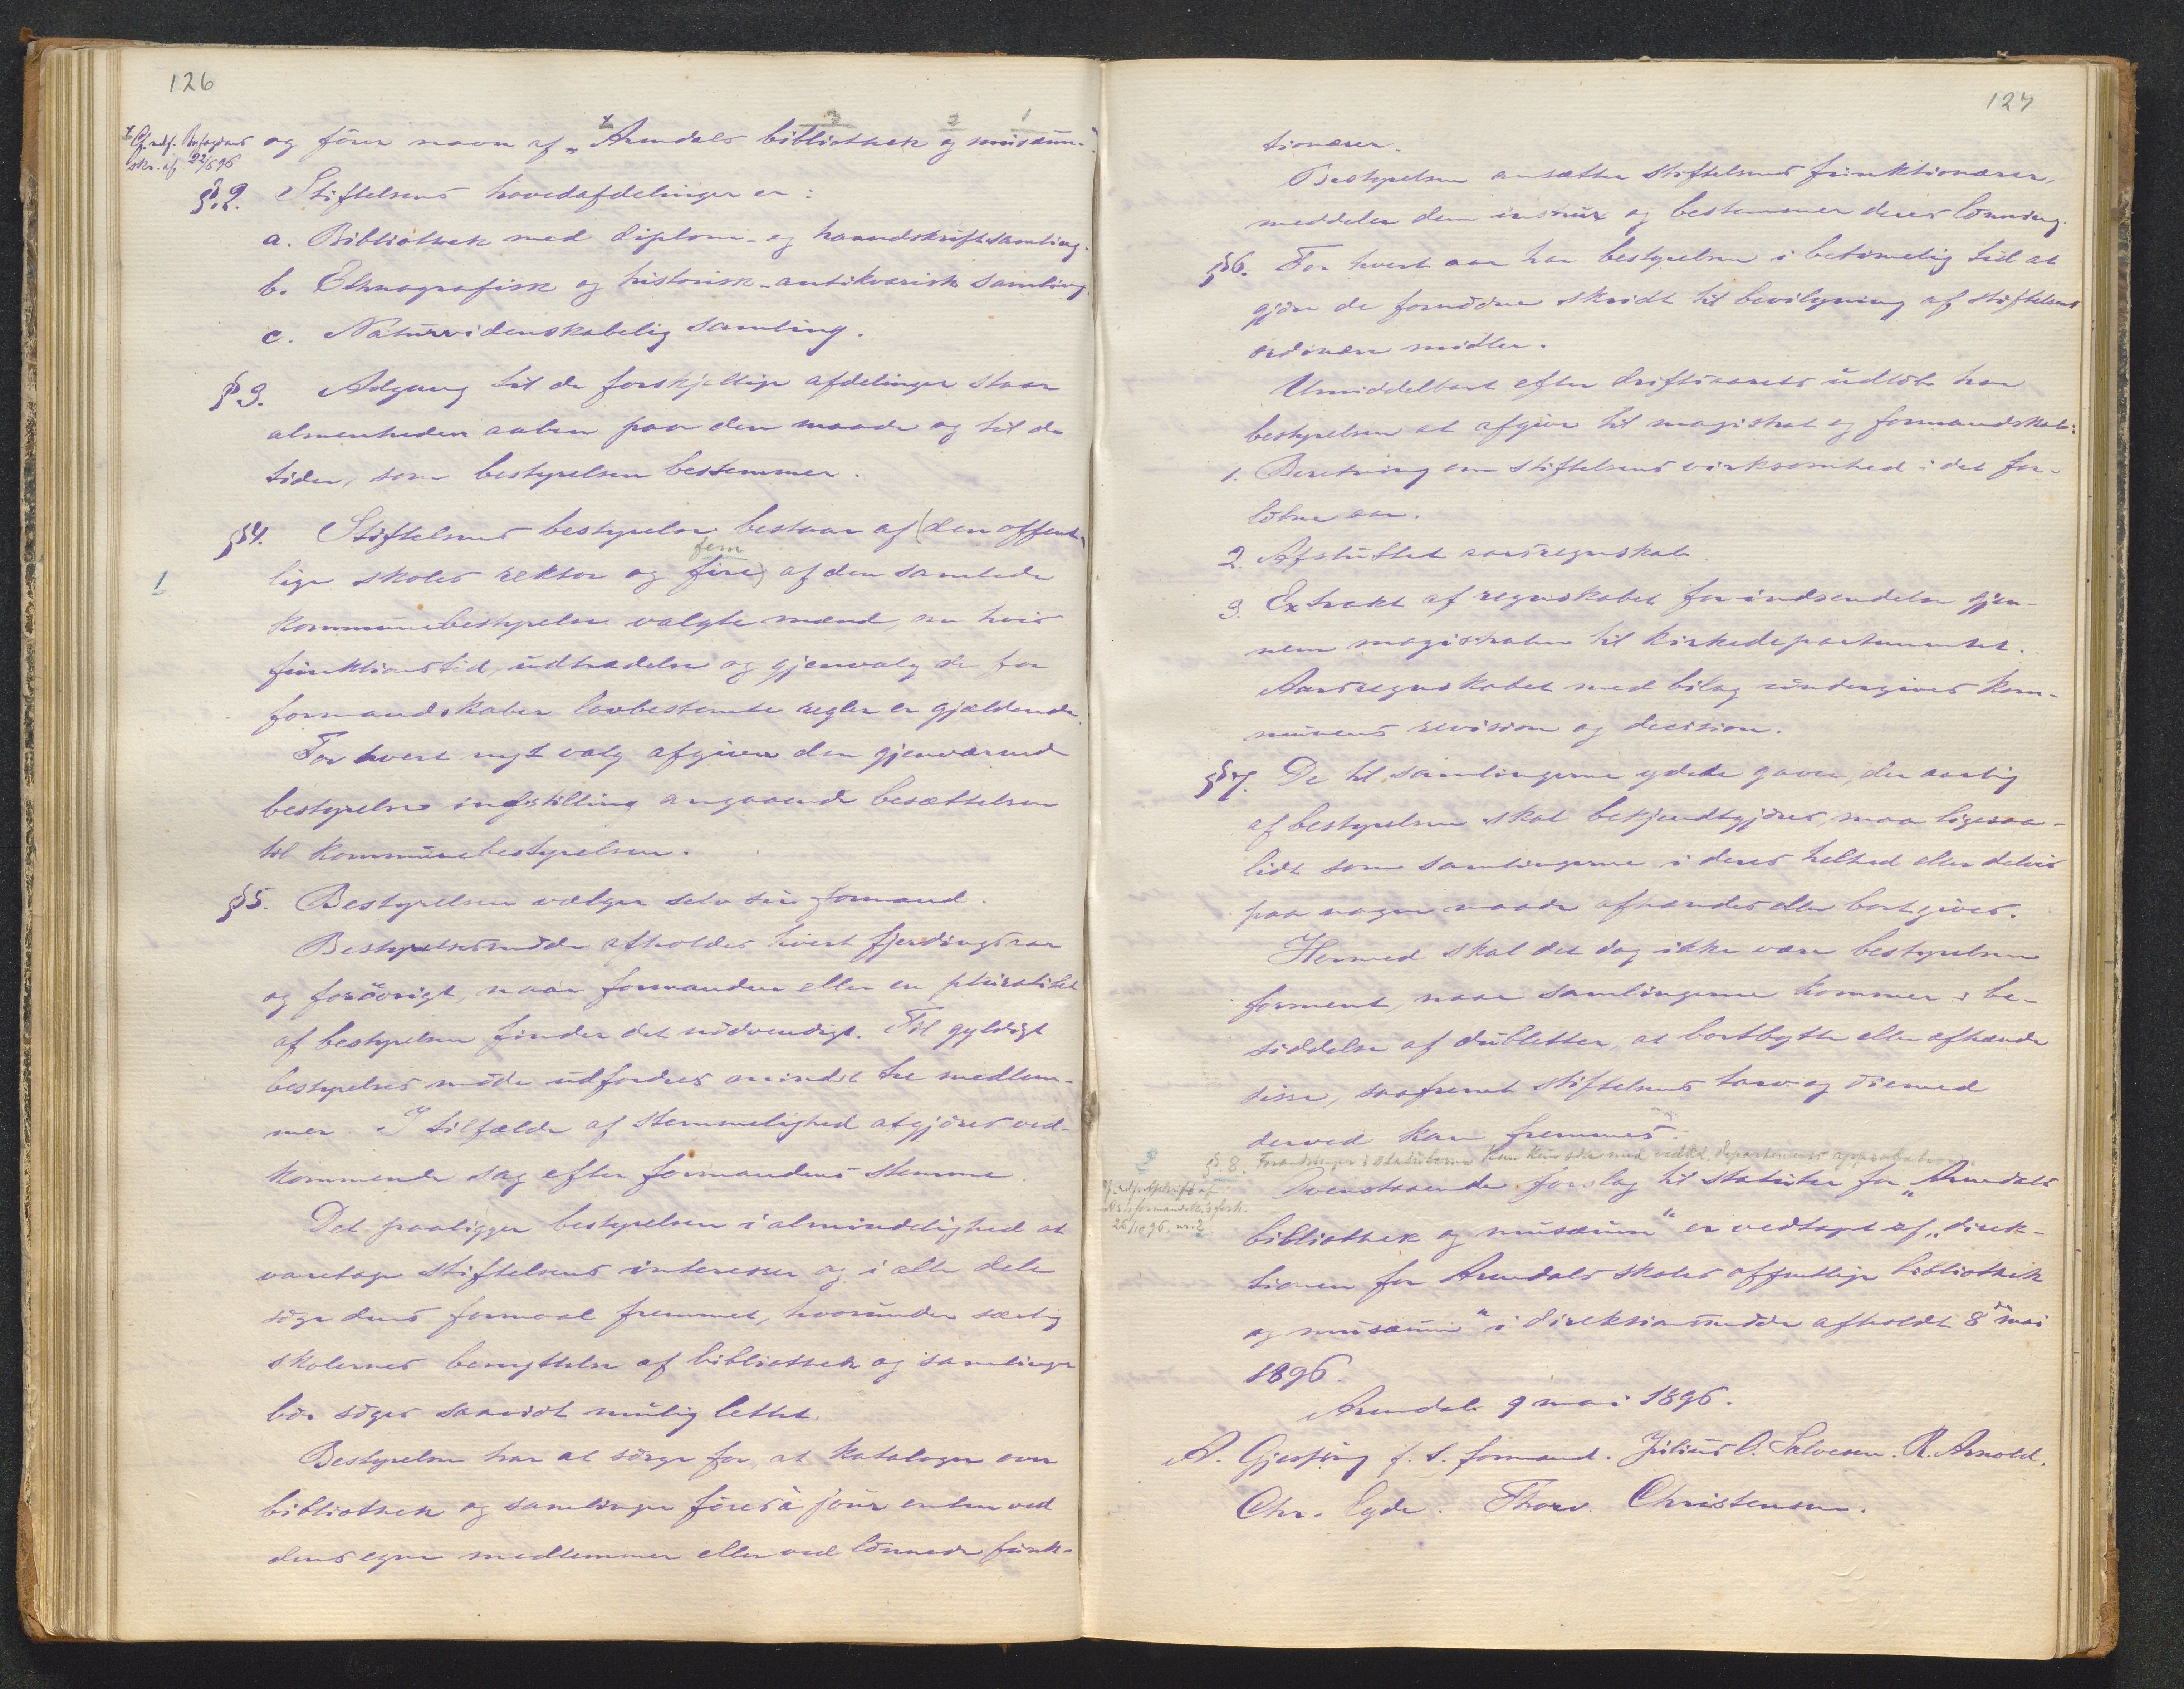 126
3 2 1
og fører navn af „Arendals bibliothek og musæum“.
skr. af 22/5 96
§ 2. Stiftelsens hovedafdelinger er:
a. Bibliothek med diplom- og haandskriftsamling.
b. Ethnografisk og historisk-antikvarisk samling.
c. Naturvidenskabelig samling.
§ 3. Adgang til de forskjellige afdelinger staar
almenheden aaben paa den maade og til de
tider, som bestyrelsen bestemmer.
§ 4. Stiftelsens bestyrelse bestaar af (den offent-
fem
1
lige skoles rektor og fire) af den samlede
kommunebestyrelse valgte mænd, om hvis
funktionstid, udtrædelse og gjenvalg de for
formandskaber lovbestemte regler er gjældende.
For hvert nyt valg afgiver den gjenværende
bestyrelse indstilling angaaende besættelsen
til kommunebestyrelsen.
§ 5. Bestyrelsen vælger selv sin formand.
Bestyrelsesmøde afholdes hvert fjerdingsaar
og forøvrigt, naar formanden eller en pluralitet
af bestyrelsen finder det nødvendigt. Til gyldigt
bestyrelses møde udfordres mindst tre medlem-
mer. I tilfælde af stemmelighed afgjøres ved-
kommende sag efter formandens stemme.
Det paaligger bestyrelsen i almindelighed at
varetage stiftelsens interesser og i alle dele
søge dens formaal fremmet, hvorunder særlig
skolernes benyttelse af bibliothek og samlinger
bør søges saavidt mulig lettet.
Bestyrelsen har at sørge for, at kataloger over
bibliothek og samlinger føres à jour enten ved
dens egne medlemmer eller ved lønnede funk-
127
tionærer.
Bestyrelsen ansætter stiftelsens funktionærer,
meddeler dem instrux og bestemmer deres lønning.
§ 6. For hvert aar har bestyrelsen i betimelig tid at
gjøre de fornødne skridt til bevilgning af stiftelsens
ordinære midler.
Umiddelbart efter driftsaarets udløb har
bestyrelsen at afgive til magistrat og formandskab:
1. Beretning om stiftelsens virksomhed i det for-
løbne aar.
2. Afsluttet aarsregnskab.
3. Extrakt af regnskabet for indsendelse gjen-
nem magistraten til kirkedepartementet.
Aarsregnskabet med bilag undergives kom-
munens revision og decision.
§ 7. De til samlingerne ydede gaver, der aarlig
af bestyrelsen skal bekjendtgjøres, maa ligesaa-
lidt som samlingerne i deres helhed eller delvis
paa nogen maade afhændes eller bortgives.
Hermed skal det dog ikke være bestyrelsen
forment, naar samlingerne kommer i be-
siddelse af dubletter, at bortbytte eller afhænde
disse, saafremt stiftelsens tarv og øiemed
derved kan fremmes.
2
§. 8. Forandringer i statuterne kan kun ske med vedkd. departements approbation.
26/10 96. nr. 2
Ovenstaaende forslag til statuter for „Arendals
bibliothek og musæum“ er vedtaget af „direk-
tionen for Arendals skoles offentlige bibliothek
og musæum“ i direktionsmøde afholdt 8de mai
1896.
Arendal 9 mai 1896.
A. Gjessing f. t. formand. Julius O. Salvesen. R. Arnold.
Chr. Eyde. Thorv. Christensen.